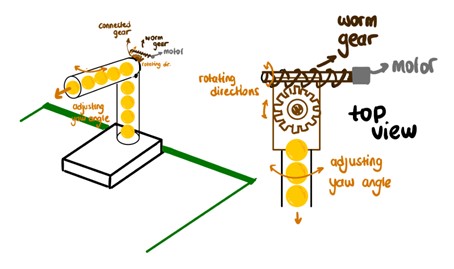 connected
gear
worm
gear
motor
rotating dir.
adjusting
yaw angle
worm
gear
motor
rotating
directions
top
view
adjusting
yaw angle